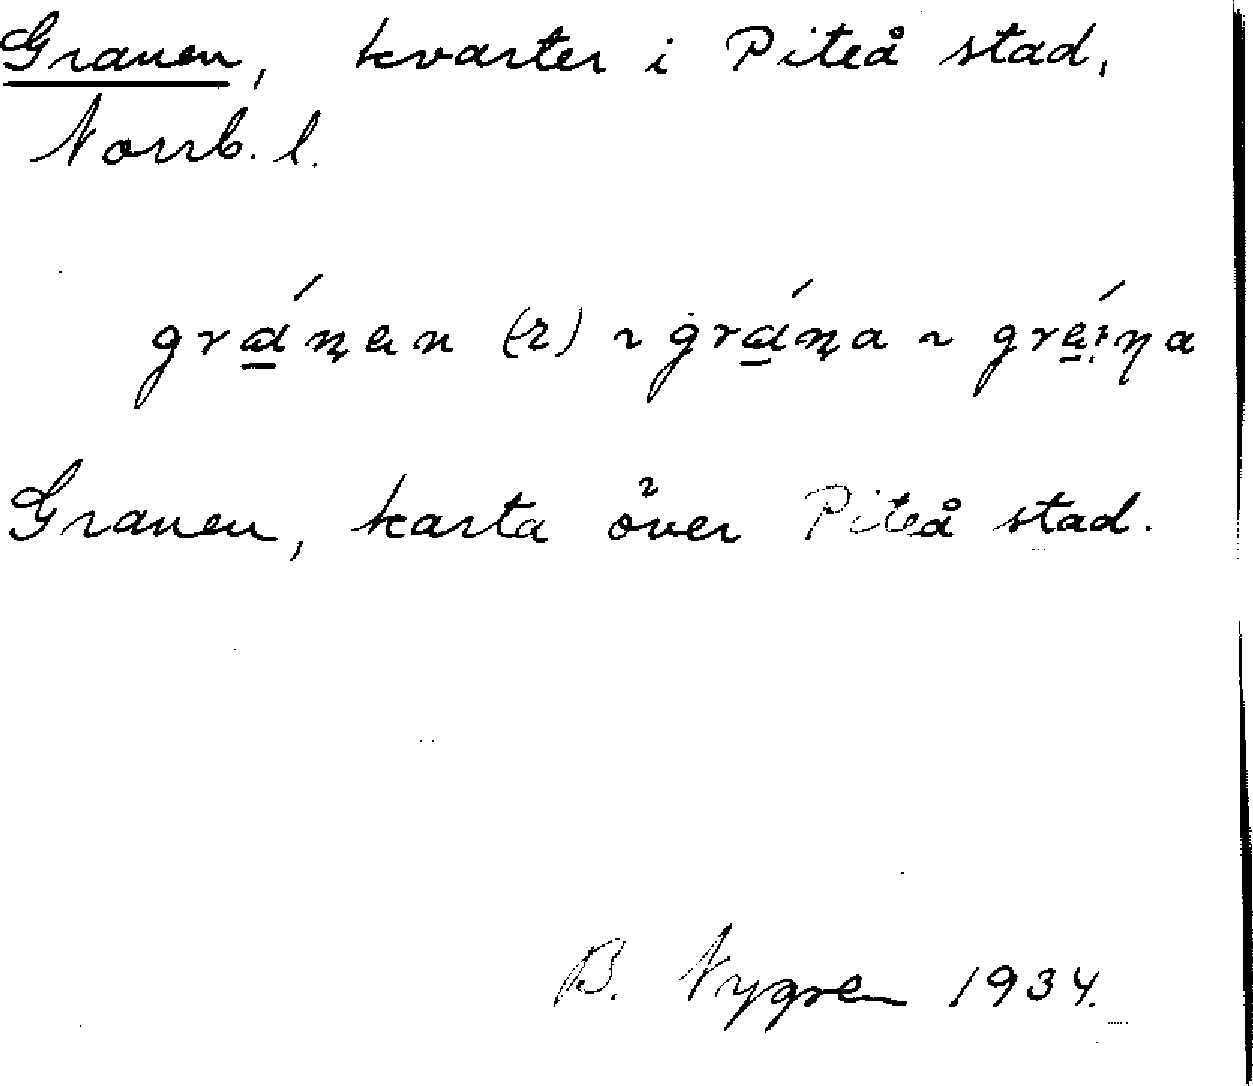 Granen, kvarter i Piteå stad,
Norrb. l.
gránan (2) ~ grána ~ gráina
Granen, karta över Piteå stad.
B. Nygren 1934.